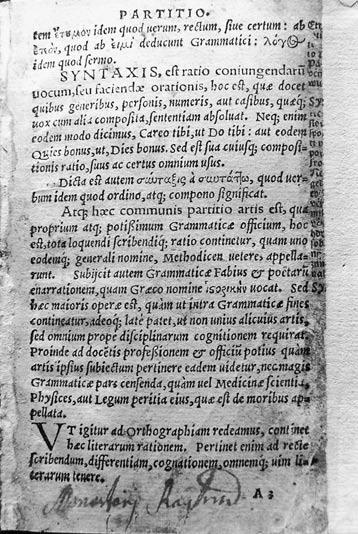 PARTITIO.
tem ἔτυμον idem quod uerum, rectum, siue certum: ab
ἔπον, quod ab εἰμὶ deducunt Grammatici: λόγος
idem quod sermo.
SYNTAXIS, est ratio coniungendarũ
uocum, seu faciendæ orationis, hoc est, quæ docet
quibus generibus, personis, numeris, aut casibus, quæq;
uox cum alia composita, sententiam absoluat. Neq; enim
eodem modo dicimus, Careo tibi, ut Do tibi: aut eodem
Quies bonus, ut, Dies bonus. Sed est sua cuiusq; composi-
tionis ratio, suus ac certus omnium usus.
Dicta est autem σύνταξις à συντάττω, quod uer-
bum idem quod ordino, atq; compono significat.
Atq; hæc communis partitio artis est, quã
proprium atq; potißimum Grammaticæ officium, hoc
est, tota loquendi scribendiq; ratio continetur, quam uno
eodemq; generali nomine, Methodicen uetere, appella-
runt. Subijcit autem Grammaticæ Fabius & poetarũ
enarrationem, quam Græco nomine ἱστορικὴν uocat. Sed
hæc maioris operæ est, quàm ut intra Grammaticæ fines
contineatur, adeoq; latè patet, ut non unius alicuius artis,
sed omnium prope disciplinarum cognitionem requirat.
Proinde ad docẽtis profeßionem & officiũ potius quam
artis ipsius subiectum pertinere eadem uidetur, nec magis
Grammaticæ pars censenda, quàm uel Medicinæ scientia,
Physices, aut Legum peritia eius, quæ est de moribus ap-
pellata.
VT igitur ad Orthographiam redeamus, continet
hæc literarum rationem. Pertinet enim ad rectè
scribendum, differentiam, cognationem, omnemq; uim li-
terarum tenere.
A 3